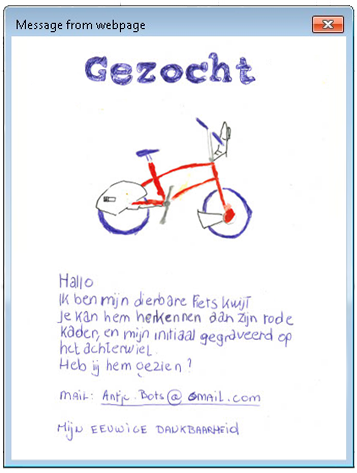 Message from webpage
Gezocht
Hallo
Ik ben mijn dierbare fiets kwijt
Je kan hem herkennen aan zijn rode
kader, en mijn initiaal gegraveerd op
het achterwiel.
Heb jij hem gezien?
MAIL: Antje.Bots@Gmail.com
Mijn EEUWIGE DANKBAARHEID